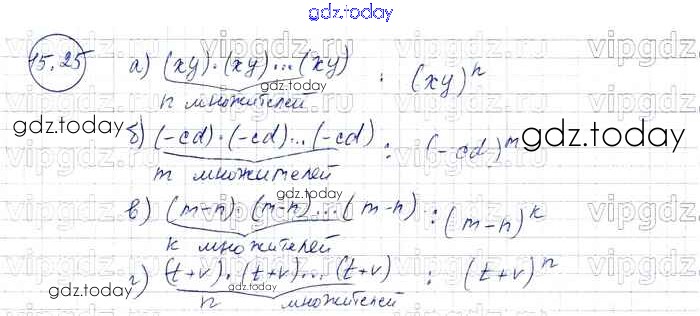 gdz.today
15.25 а) (xy)·(xy)...(xy) : (xy)^n
n множителей
gdz.today
б) (-cd)·(-cd)...(-cd) : (-cd)^m
m множителей
gdz.today
в) (m-n) (m-n)...(m-n) : (m-n)^k
k множителей
gdz.today
г) (t+v)·(t+v)...(t+v) : (t+v)^n
n множителей
gdz.today